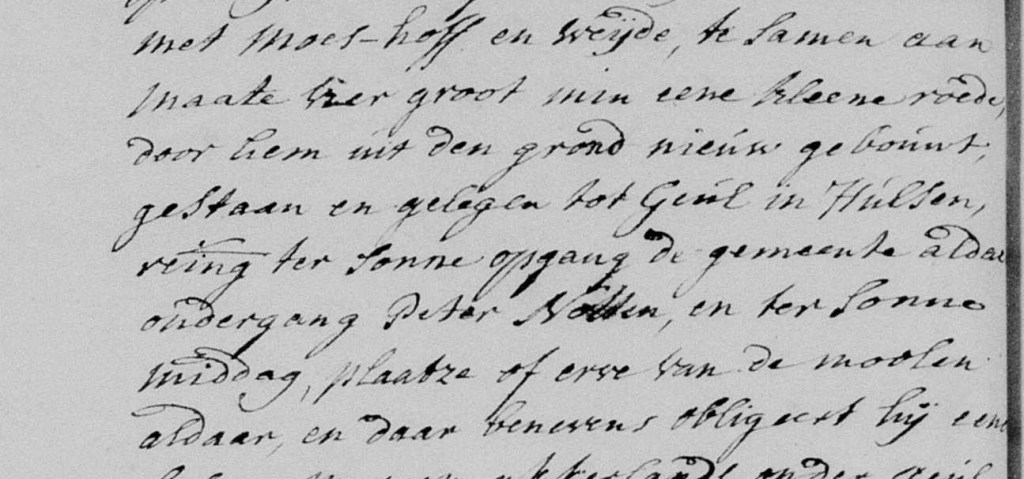 met moes-hoff en weijde, te samen aan
maate vier groot min eene kleene roede,
door hem uit den grond nieuw gebouwt,
gestaan en gelegen tot Geul in Hulsen,
reing ter sonne opgang de gemeente aldaar
ondergang Peter Notten, en ter sonne
middag, plaatze of erve van de moolen
aldaar, en daar benevens obligeert hij eene
akkerlands onder Geul